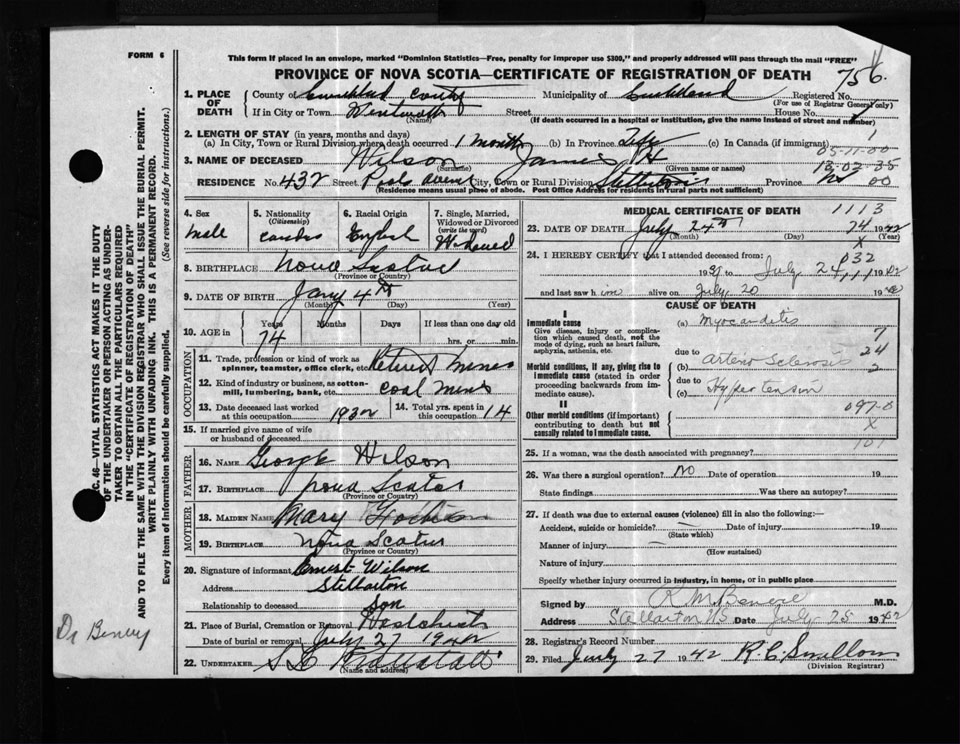 FORM 6
This form if placed in an envelope, marked "Dominion Statistics—Free, penalty for improper use $300," and properly addressed will pass through the mail "FREE"
PROVINCE OF NOVA SCOTIA—CERTIFICATE OF REGISTRATION OF DEATH
756
C. 46—VITAL STATISTICS ACT MAKES IT THE DUTY
OF THE UNDERTAKER OR PERSON ACTING AS UNDER-
TAKER TO OBTAIN ALL THE PARTICULARS REQUIRED
IN THE "CERTIFICATE OF REGISTRATION OF DEATH"
AND TO FILE THE SAME WITH THE DIVISION REGISTRAR WHO SHALL ISSUE THE BURIAL PERMIT.
WRITE PLAINLY WITH UNFADING INK. THIS IS A PERMANENT RECORD.
Every item of information should be carefully supplied. (See reverse side for instructions.)
1. PLACE OF DEATH
County of Cumberland County Municipality of Cumberland Registered No.
(For use of Registrar General only)
If in City or Town Wentworth Street House No.
(Name) (If death occurred in a hospital or institution, give the name instead of street and number)
2. LENGTH OF STAY (in years, months and days)
(a) In City, Town or Rural Division where death occurred 1 month (b) In Province Life (c) In Canada (if immigrant)
1
05-11-00
3. NAME OF DECEASED Wilson James H
(Surname) (Given name or names)
13-02-35
RESIDENCE No. 432 Street City, Town or Rural Division Stellarton Province
00
(Residence means usual place of abode. Post Office Address for residents in rural parts not sufficient)
4. Sex
male
5. Nationality
(Citizenship)
6. Racial Origin
English
7. Single, Married, Widowed or Divorced
(write the word)
Widowed
8. BIRTHPLACE Nova Scotia
(Province or Country)
9. DATE OF BIRTH Jany 4th
(Month) (Day) (Year)
10. AGE in Years Months Days If less than one day old
74 hrs. or min.
OCCUPATION
11. Trade, profession or kind of work as
spinner, teamster, office clerk, etc. Retired Miner
12. Kind of industry or business, as cotton-
mill, lumbering, bank, etc. coal mines
13. Date deceased last worked
at this occupation 1932
14. Total yrs. spent in
this occupation 14
15. If married give name of wife
or husband of deceased
FATHER
16. NAME George Wilson
17. BIRTHPLACE Nova Scotia
(Province or Country)
MOTHER
18. MAIDEN NAME Mary
19. BIRTHPLACE Nova Scotia
(Province or Country)
20. Signature of informant Ernest Wilson
Address Stellarton
Relationship to deceased Son
21. Place of Burial, Cremation or Removal
Date of burial or removal July 27 1942
22. UNDERTAKER
(Name and address)
Dr Benvie
MEDICAL CERTIFICATE OF DEATH
1113
23. DATE OF DEATH July 24th 24 1942
(Month) (Day) (Year)
X
24. I HEREBY CERTIFY that I attended deceased from:
832
July 24 1942
and last saw him alive on July 20 19
CAUSE OF DEATH
I
Immediate cause
Give disease, injury or complica-
tion which caused death, not the
mode of dying, such as heart failure,
asphyxia, asthenia, etc.
(a) Myocarditis
due to
7
24
2
Morbid conditions, if any, giving rise to
immediate cause (stated in order
proceeding backwards from im-
mediate cause).
(b) Arterio Sclerosis
due to
(c) Hypertension
II
Other morbid conditions (if important)
contributing to death but not
causally related to immediate cause.
097-0
X
101
25. If a woman, was the death associated with pregnancy?
26. Was there a surgical operation? NO Date of operation 19
State findings Was there an autopsy?
27. If death was due to external causes (violence) fill in also the following:—
Accident, suicide or homicide? Date of injury 19
(State which)
Manner of injury
(How sustained)
Nature of injury
Specify whether injury occurred in industry, in home, or in public place
Signed by M.D.
Address Stellarton N.S. Date July 25 1942
28. Registrar's Record Number
29. Filed July 27 1942
(Division Registrar)